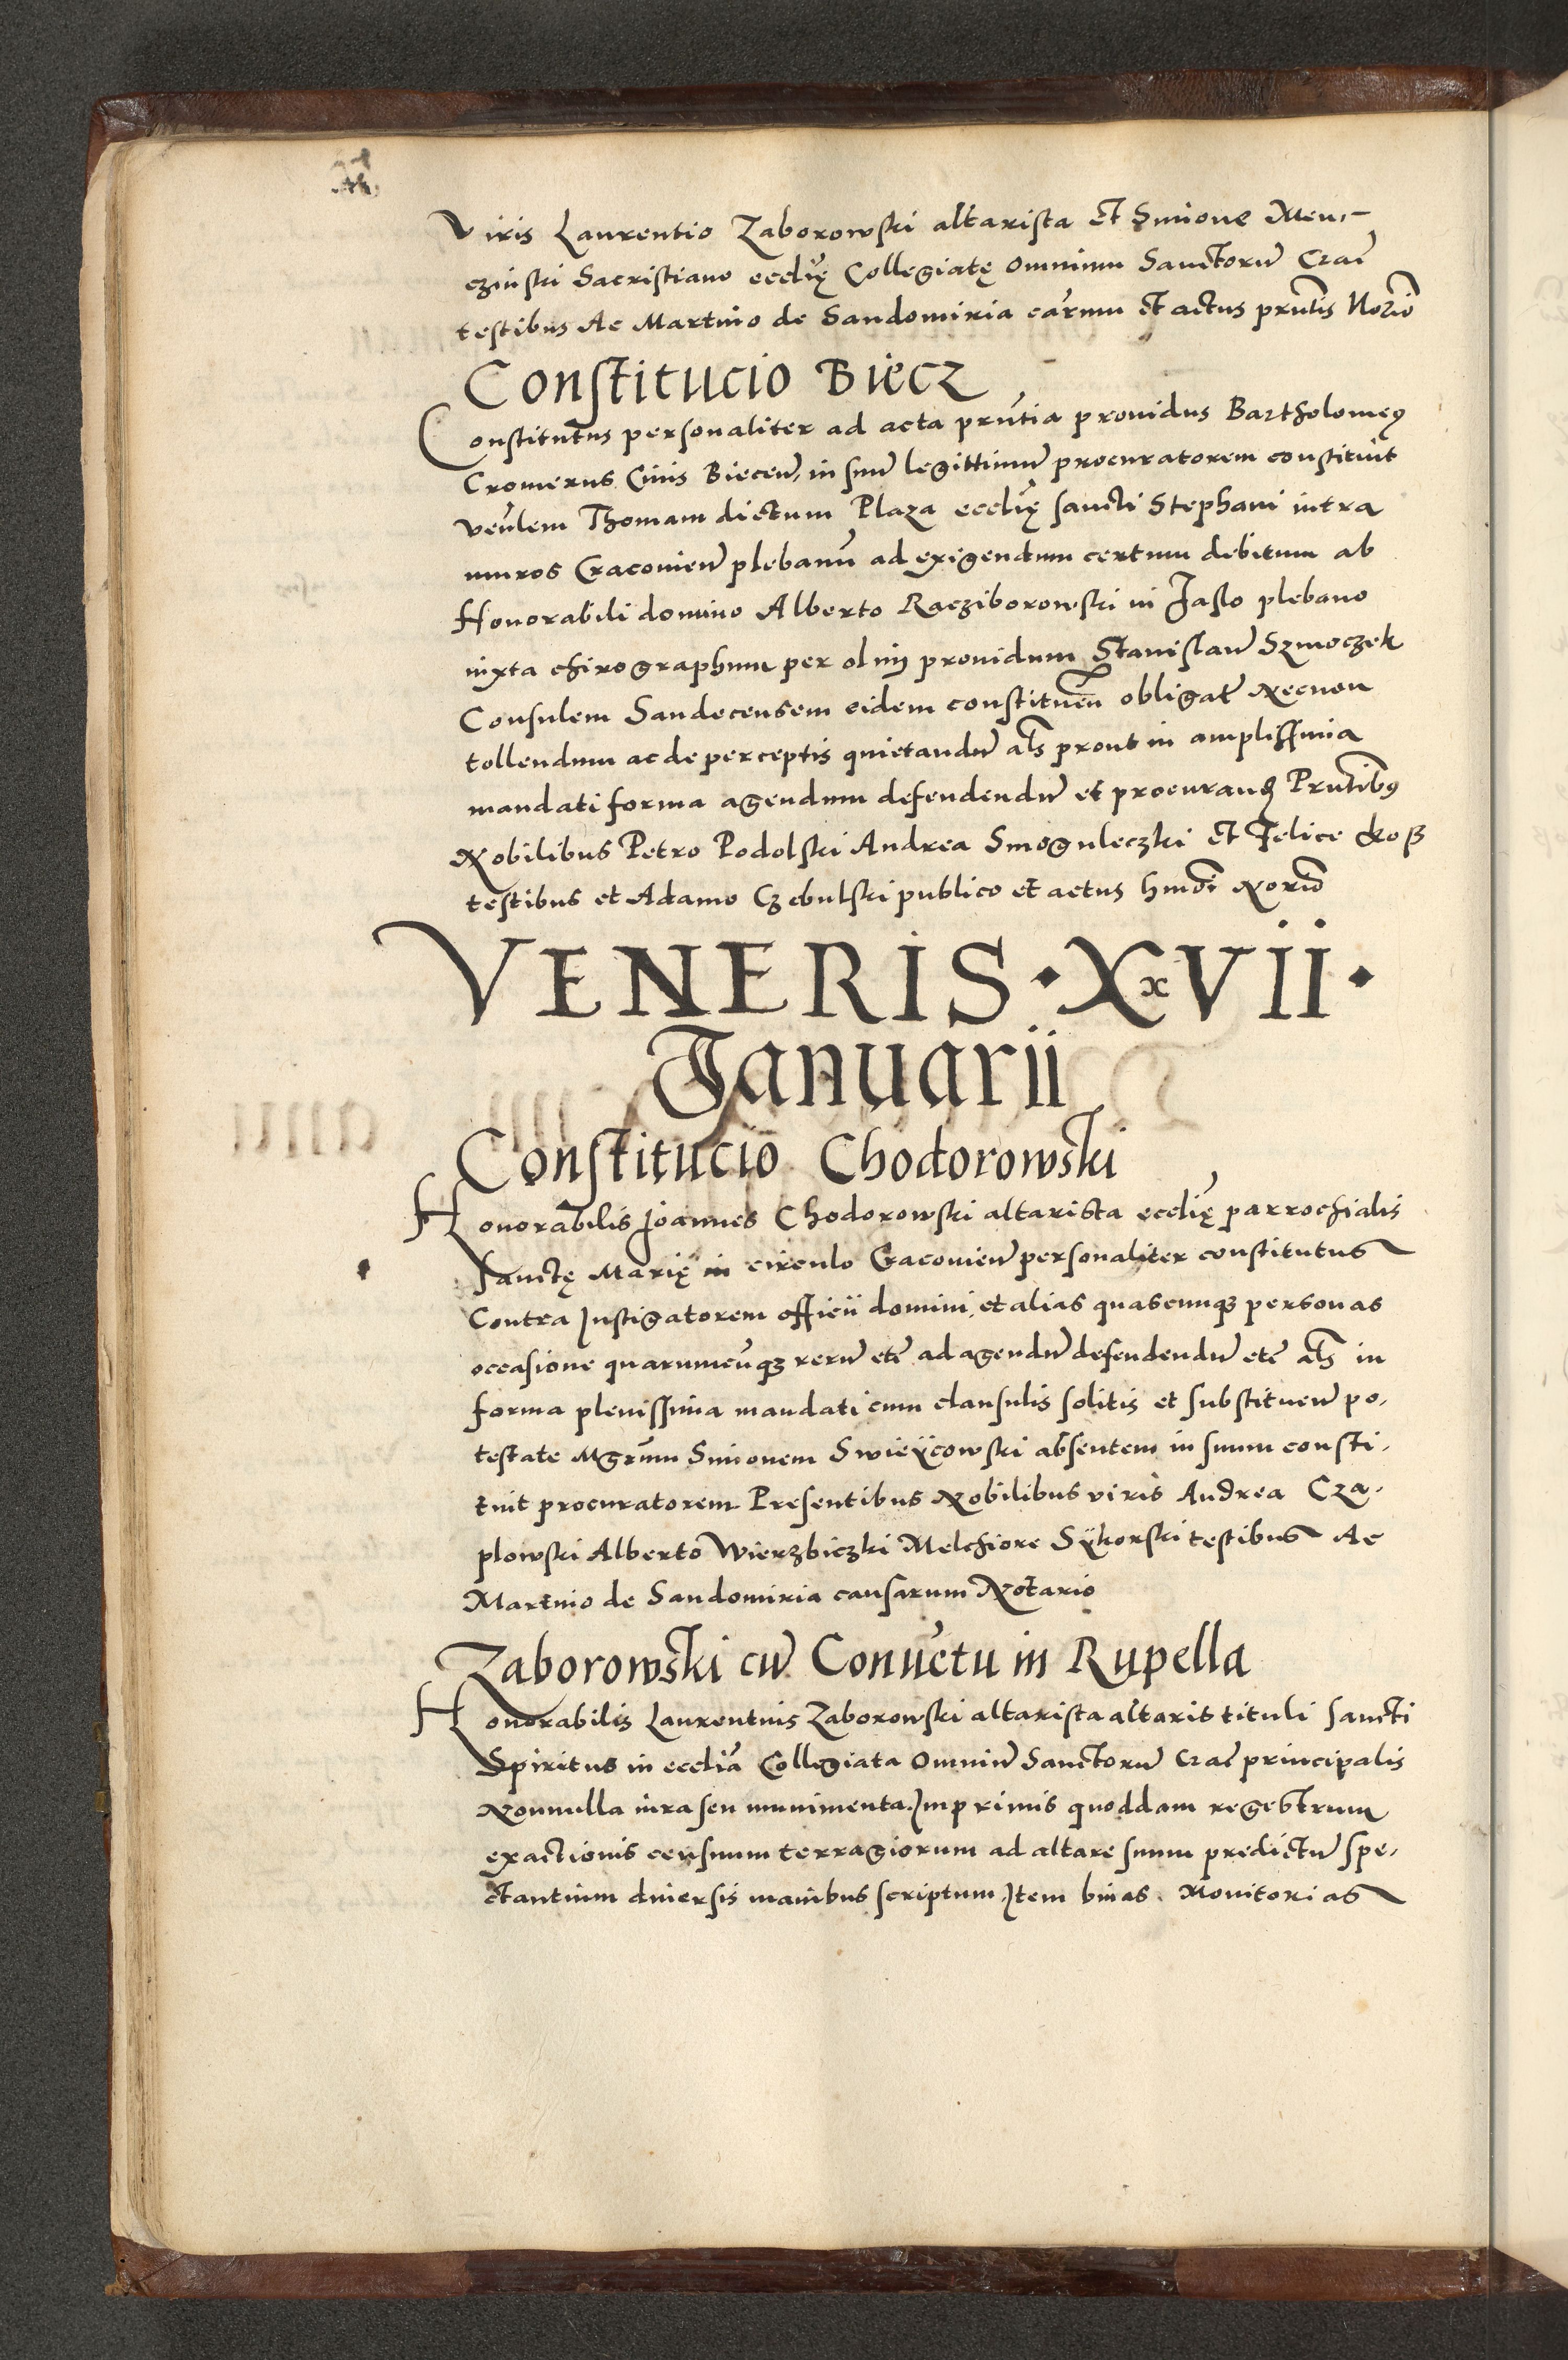 Viris Laurentio Zaborowski altarista et Simone Men-
czinski Sacristiano ecclię Collegiatę Omnium Sanctorum Crac
testibus Ac Martino de Sandomiria carum et actus prntis Norio
Constitucio Biecz
Constitutus personaliter ad acta prntia prouidus Bartholomeus
Cromerus Ciuis Biecen, in suum legittimum procuratorem constituit
venlem Thomam dictum Plaza ecclię sancti Stephani intra
muros Cracouien plebanum ad exigendum certum debitum ab
Honorabili domino Alberto Racziborowski in Jaslo plebano
iuxta chirographum per olim prouidum Stanislaum Szmoczek
Consulem Sandecensem eidem constituen obligat Necnon
tollendum ac de perceptis quietandum als prout in amplissima
mandati forma agendum defendendum et procurand Prntibus
Nobilibus Petro Podolski Andrea Smoguleczki et Felice
testibus et Adamo Czebulski publico et actus hmoi Norio
VENERIS · XxVII ·
Januarii
Constitucio Chodorowski
Honorabilis Joannes Chodorowski altarista ecclię parrochialis
Sanctę Marię in circulo Cracouien personaliter constitutus
Contra Instigatorem officii domini, et alias quascunque personas
occasione quarumcunque rerum etc ad agendum defendendum etc als in
forma plenissima mandati cum clausulis solitis et substituen po-
testate Mgrum Simonem Swieÿcowski absentem in suum consti-
tuit procuratorem Presentibus Nobilibus viris Andrea Cza-
plowski Alberto Wierzbiczki Melchiore Sÿkorski testibus Ac
Martino de Sandomiria causarum Notario
Zaborowski cum Conuctu in Rupella
Honorabilis Laurentius Zaborowski altarista altaris tituli Sancti
Spiritus in ecclia Collegiata Omnium Sanctorum Crac principalis
Nonnulla iura seu munimenta. Imprimis quoddam regestrum
exactionis censuum terragiorum ad altare suum predictum spe-
ctantium diuersis manibus scriptum Item binas Monitorias